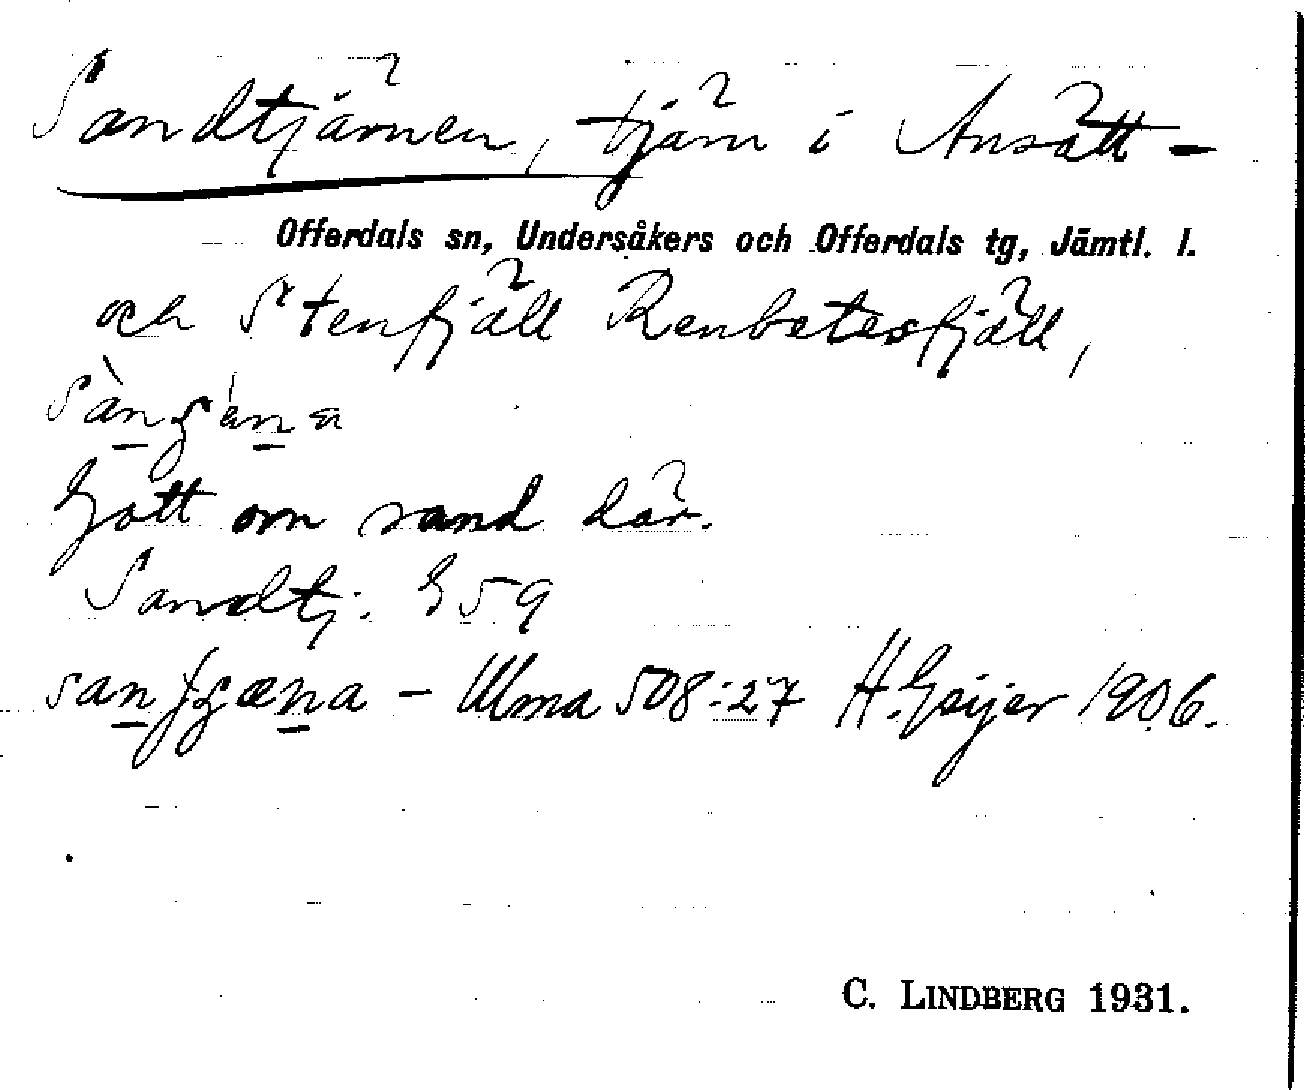 Sandtjärnen, tjärn i Ansätt-
Offerdals sn, Undersåkers och Offerdals tg, Jämtl. l.
och Stenfjäll Renbetesfjäll,
Gott om sand där.
Sandtj. G 59
– Ulma 508:27 H. Geijer 1906.
C. LINDBERG 1931.